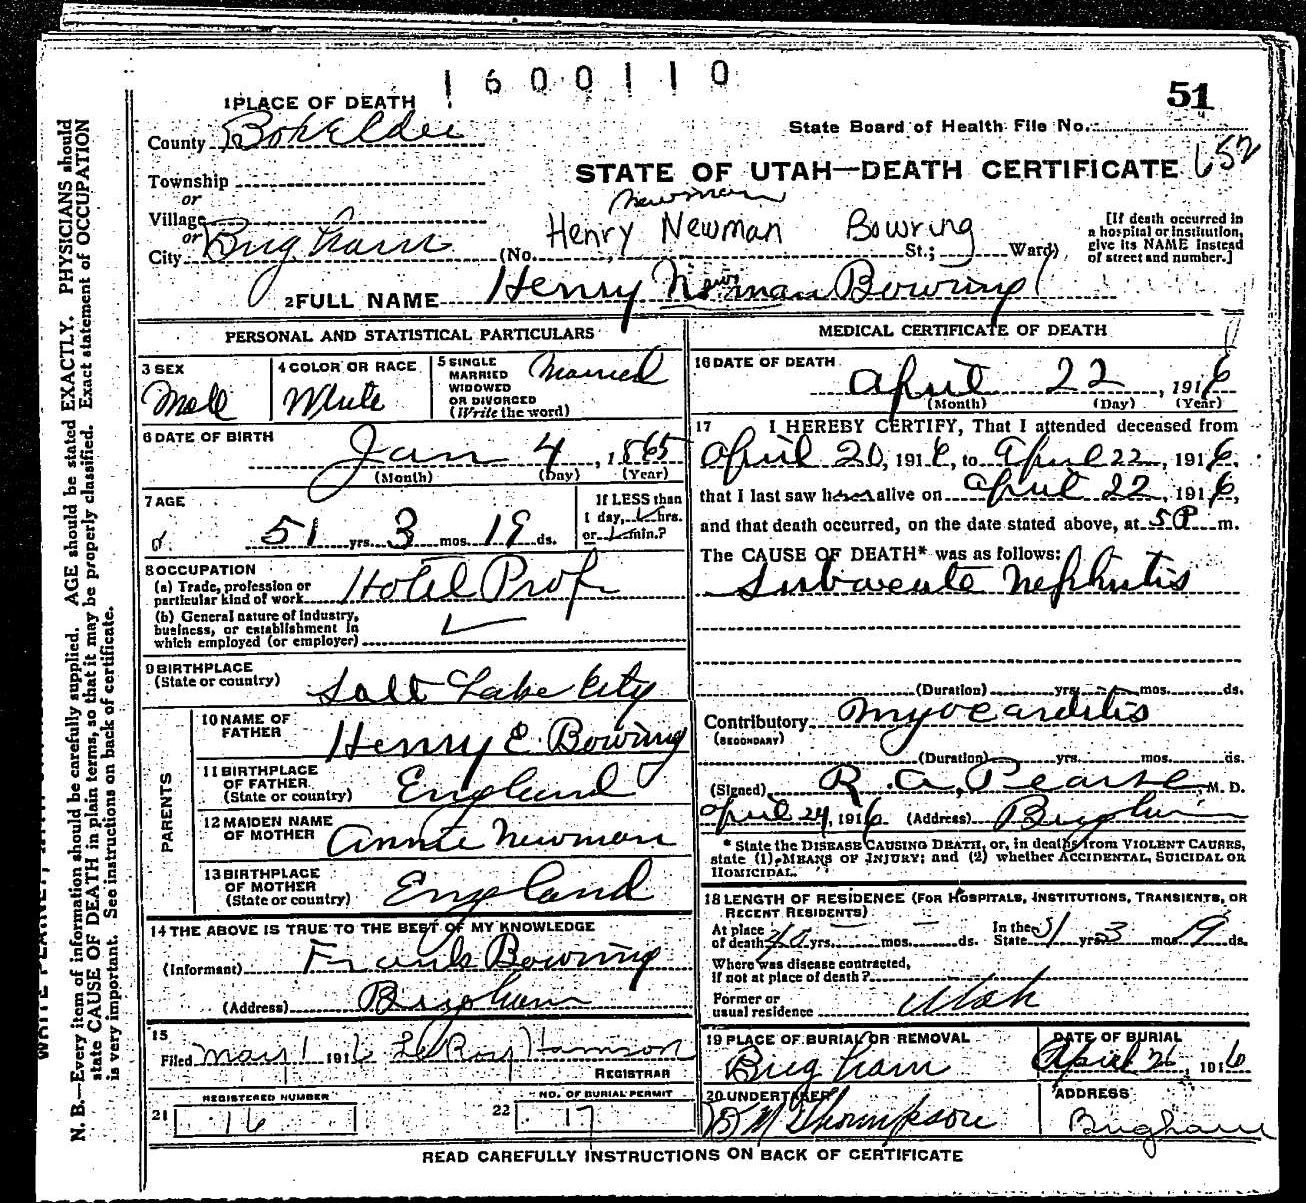 1600110
51
1 PLACE OF DEATH
State Board of Health File No.
652
County Box Elder
STATE OF UTAH—DEATH CERTIFICATE
Township
or
Newman
Village
or
Henry Newman Bowring
[If death occurred in
a hospital or institution,
give its NAME instead
of street and number.]
City Brigham (No. St.; Ward)
2 FULL NAME Henry Newman Bowring
PERSONAL AND STATISTICAL PARTICULARS
3 SEX
Male
4 COLOR OR RACE
White
5 SINGLE
MARRIED
WIDOWED
OR DIVORCED
(Write the word)
Married
6 DATE OF BIRTH
Jan 4, 1865
(Month) (Day) (Year)
7 AGE
51 yrs. 3 mos. 19 ds.
If LESS than
1 day, hrs.
or min.?
8 OCCUPATION
(a) Trade, profession or
particular kind of work Hotel Prop
(b) General nature of industry,
business, or establishment in
which employed (or employer)
9 BIRTHPLACE
(State or country) Salt Lake City
PARENTS
10 NAME OF
FATHER Henry E. Bowring
11 BIRTHPLACE
OF FATHER
(State or country) England
12 MAIDEN NAME
OF MOTHER Annie Newman
13 BIRTHPLACE
OF MOTHER
(State or country) England
14 THE ABOVE IS TRUE TO THE BEST OF MY KNOWLEDGE
(Informant) Frank Bowring
(Address) Brigham
15
Filed May 1 1916 Le Roy Hamson
REGISTRAR
REGISTERED NUMBER
21 16
NO. OF BURIAL PERMIT
22 17
MEDICAL CERTIFICATE OF DEATH
16 DATE OF DEATH
April 22, 1916
(Month) (Day) (Year)
17 I HEREBY CERTIFY, That I attended deceased from
April 20, 1916, to April 22, 1916,
that I last saw h alive on April 22, 1916,
and that death occurred, on the date stated above, at 5 P m.
The CAUSE OF DEATH* was as follows:
Subacute Nephritis
(Duration) yrs. mos. ds.
Contributory Myocarditis
(SECONDARY)
(Duration) yrs. mos. ds.
(Signed) R. A. Pearse, M. D.
April 24, 1916 (Address) Brigham
* State the DISEASE CAUSING DEATH, or, in deaths from VIOLENT CAUSES,
state (1) MEANS OF INJURY; and (2) whether ACCIDENTAL, SUICIDAL OR
HOMICIDAL.
18 LENGTH OF RESIDENCE (FOR HOSPITALS, INSTITUTIONS, TRANSIENTS, OR
RECENT RESIDENTS)
At place
of death 40 yrs. mos. ds.
In the
State 51 yrs. 3 mos. 19 ds.
Where was disease contracted,
if not at place of death?
Former or
usual residence Utah
19 PLACE OF BURIAL OR REMOVAL
Brigham
DATE OF BURIAL
April 26, 1916
20 UNDERTAKER
M Thompson
ADDRESS
Brigham
READ CAREFULLY INSTRUCTIONS ON BACK OF CERTIFICATE
N. B.—Every item of information should be carefully supplied. AGE should be stated EXACTLY. PHYSICIANS should
state CAUSE OF DEATH in plain terms, so that it may be properly classified. Exact statement of OCCUPATION
is very important. See instructions on back of certificate.